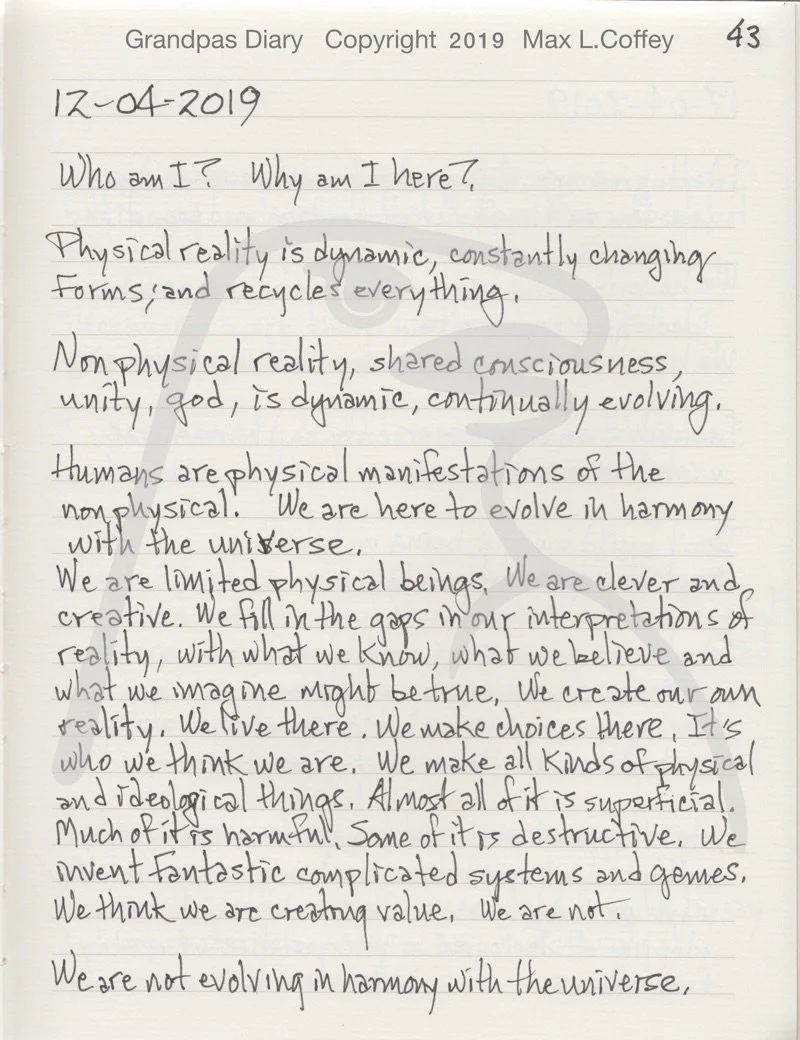 Grandpas Diary Copyright 2019 Max L.Coffey 43
12-04-2019
Who am I? Why am I here?
Physical reality is dynamic, constantly changing
forms, and recycles everything.
Nonphysical reality, shared consciousness,
unity, god, is dynamic, continually evolving.
Humans are physical manifestations of the
nonphysical. We are here to evolve in harmony
with the universe.
We are limited physical beings. We are clever and
creative. We fill in the gaps in our interpretations of
reality, with what we know, what we believe and
what we imagine might be true. We create our own
reality. We live there. We make choices there. It's
who we think we are. We make all kinds of physical
and ideological things. Almost all of it is superficial.
Much of it is harmful. Some of it is destructive. We
invent fantastic complicated systems and games.
We think we are creating value. We are not.
We are not evolving in harmony with the universe.